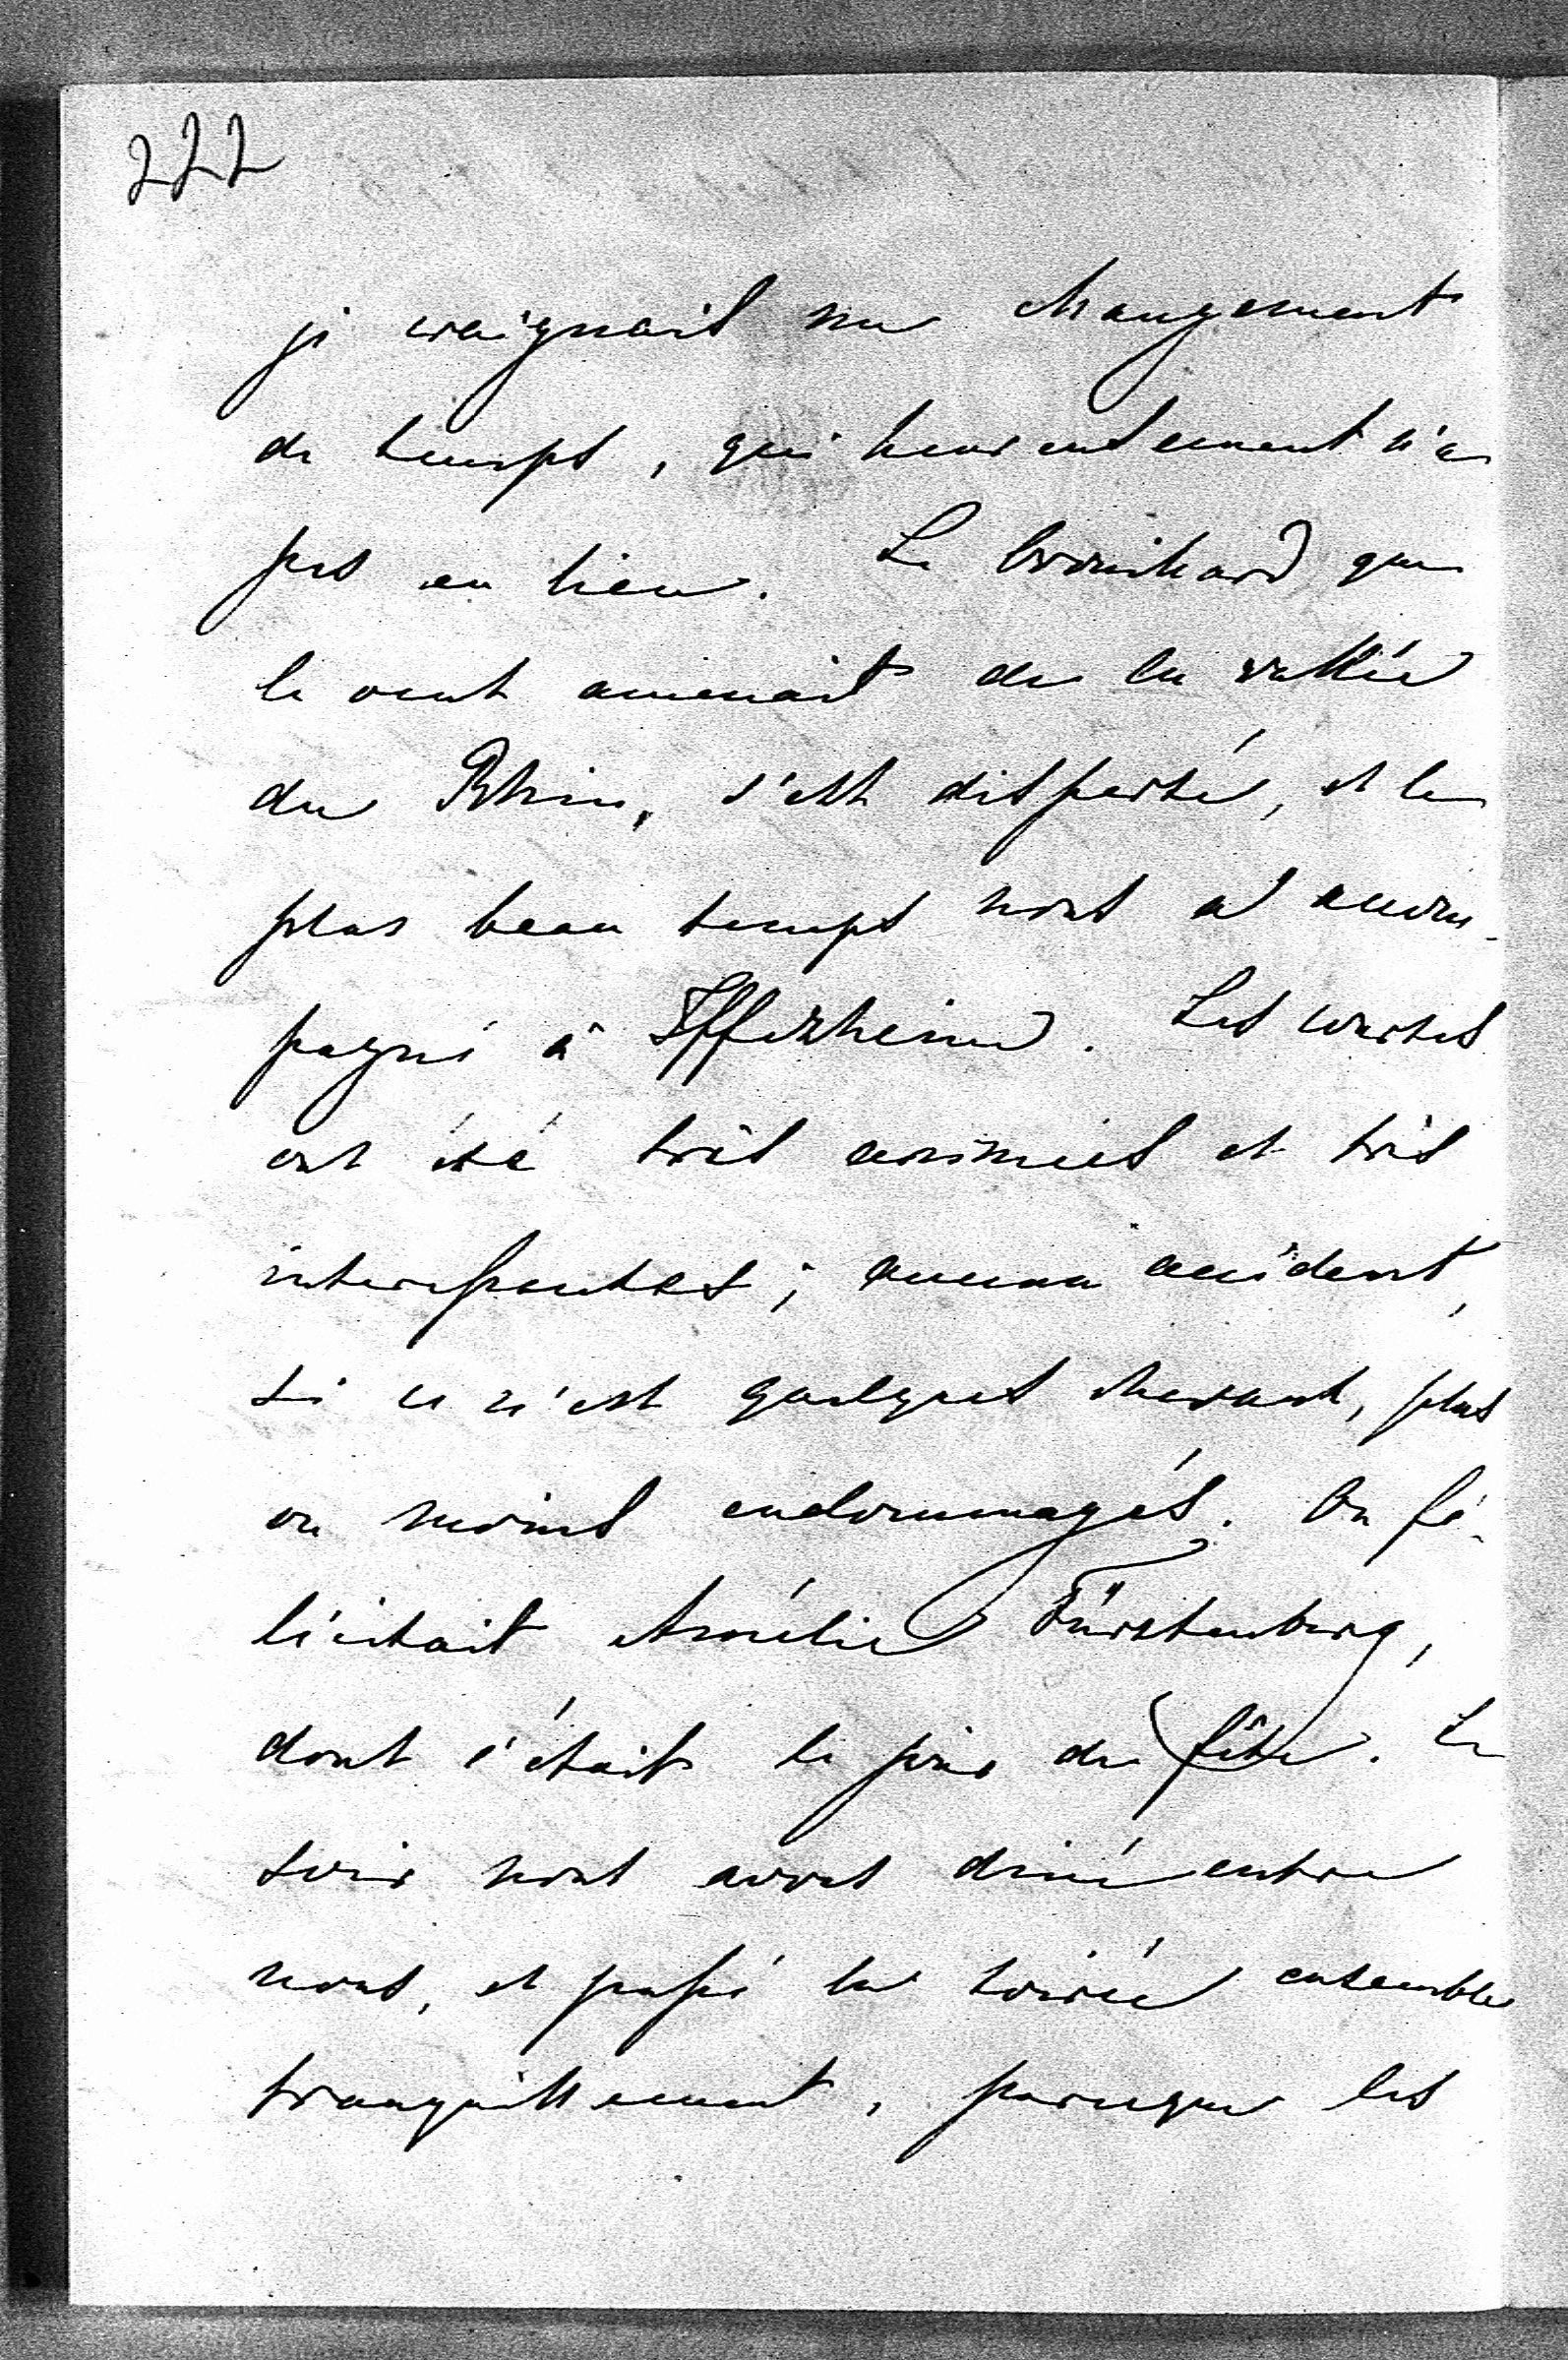 222
je craignais un changement
de temps, qui heureusement n'a
pas eu lieu. Le brouillard que
le vent amenait de la vallée
du Rhin, s'est dispersé, et le
plus beau temps nous a accom-
pagné à Iffezheim. Les courses
ont été très animées et très
interessantes; aucun accident,
si ce n'est quelques chevaux, plus
ou moins endommagés. On fé-
licitait Amélie Fürstenberg,
dont c'était le jour de fête. Le
soir nous avons diné entre
nous, et passé la soirée ensemble
tranquillement, parceque les